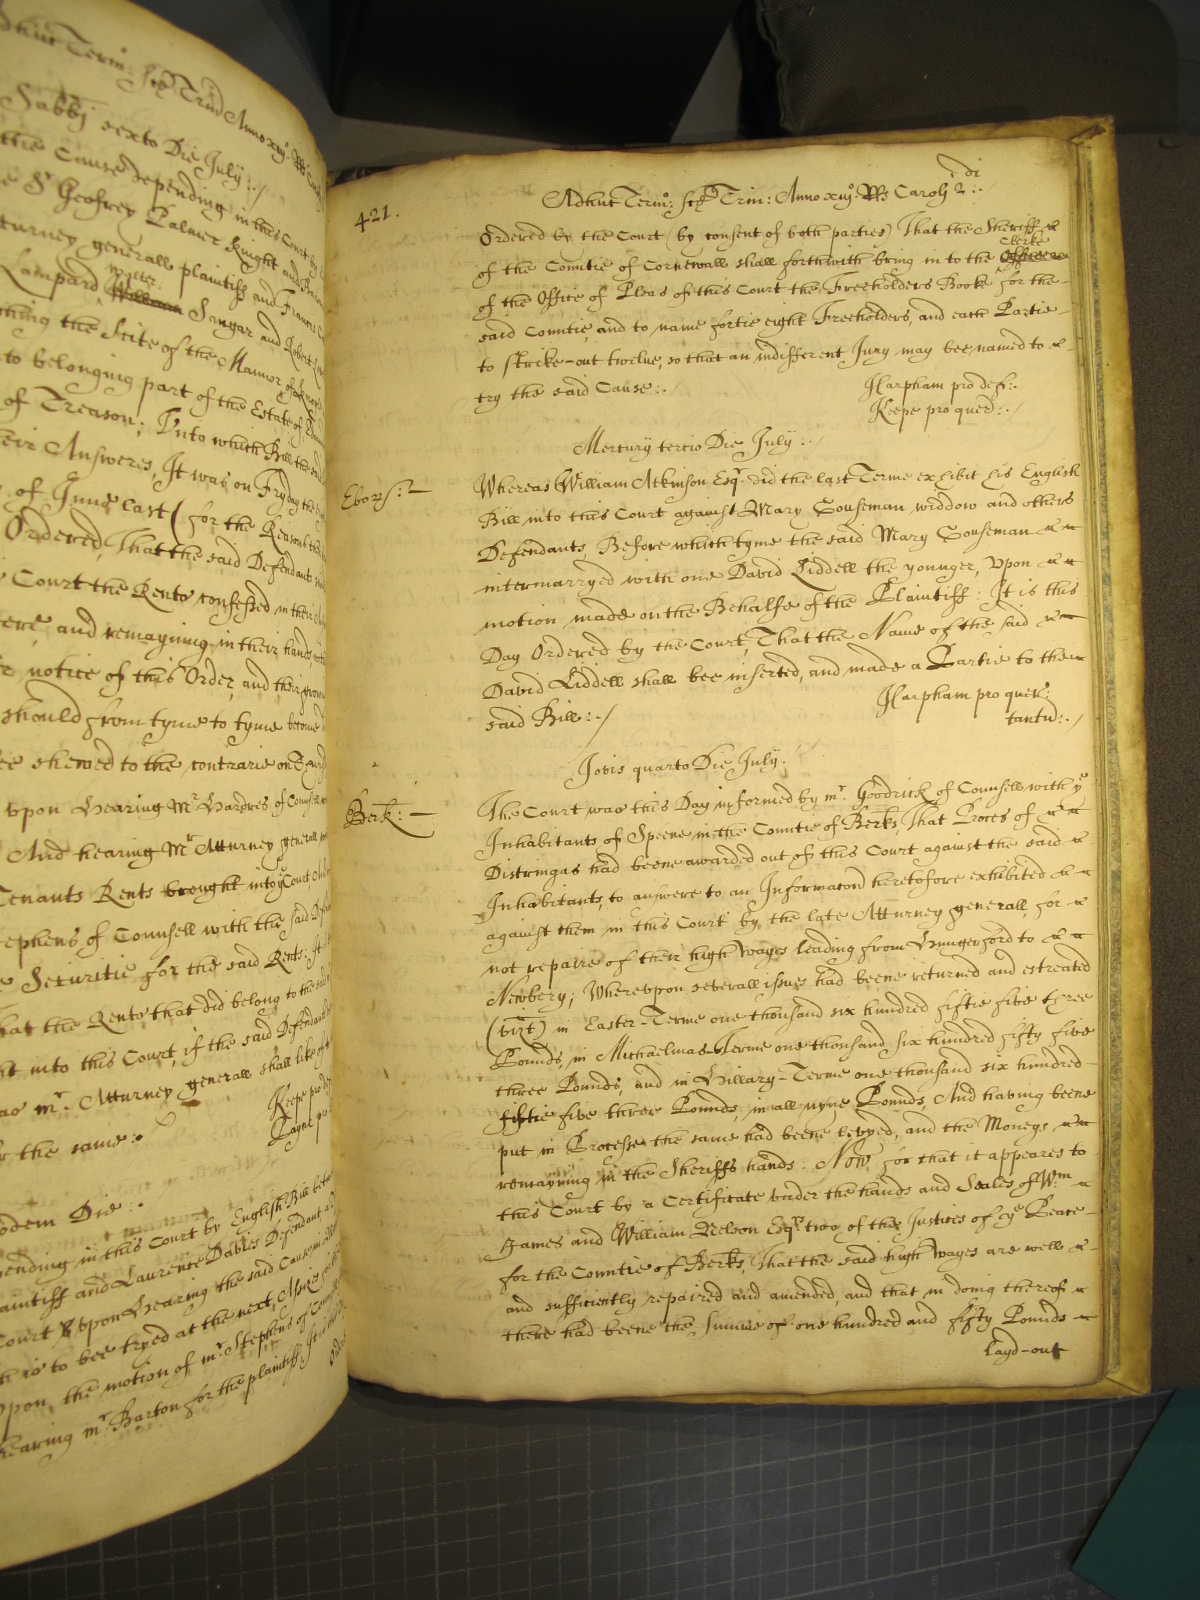 Adhuc Term: Sce Trin Anno xiijo. Rs Caroli
Sabbi sexto Die July :./
the Cause depending in this Court by
Sr. Geofrey Palmer Knight and Baronet
Atturney generall plaintiff and Francis
Lampard, Peter Sangar and Robert
the Scite of the Mannor of
to belonging part of the Estate of
of Treason; Unto which Bill the said
their Answeres, It was on Fryday the
of June last (for the Reasons therein
Ordered, That the said Defendants
Court the Rents confessed in their
and remayning in their hands
notice of this Order, and their
should from tyme to tyme become
shewed to the contrarie on
upon Hearing Mr. Hardres of Counsell
And hearing Mr. Atturney generall
Tenants Rents brought into ye Court
Stephens of Counsell with the said
Securitie for the said Rents: It
that the Rents that did belong to the said
into this Court, if the said Defendants
mr. Atturney generall shall like of
Keepe pro
the same :.
Payne pro
eodem Die :.
depending in this Court by English Bill
plaintiff and Laurence Dabies Defendant
Court upon Hearing the said Cause
is to bee tryed at the next Assizes
upon the motion of mr. Stephens of
hearing mr. Barton for the plaintiff It is
421.
Adhuc Term: Sce Trin: Anno xiijo. Rs Caroli 2 di :.
Ordered by the Court (by consent of both parties) That the Sheriff
of the Countie of Cornewall shall forthwith bring in to the Clerke
of the Office of Pleas of this Court the Freeholders Booke for the
said Countie, and to name fortie eight Freeholders, and each Partie
to strike-out twelve, so that an indifferent Jury may bee named to
try the said Cause :.
Harpham pro def :.
Keepe pro quer :./
Mercurij tercio Die July :./
Ebor :.
Whereas William Atkinson Esqr. did the last Terme exhibit his English
Bill into this Court against Mary Houseman widdow and others
Defendants, Before which tyme the said Mary Houseman
intermarryed with one David Liddell the younger, Upon
motion made on the Behalfe of the Plaintiff: It is this
Day Ordered by the Court, That the Name of the said
David Liddell shall bee inserted, and made a Partie to the
said Bill :./
Harpham pro quer:
tantu :./
Jovis quarto Die July :
Berk :
The Court was this Day informed by mr. Goodrick of Counsell with ye
Inhabitants of Speene in the Countie of Berks, That Proces of
Distringas had beene awarded out of this Court against the said
Inhabitants, to answere to an Informacon heretofore exhibited
against them in this Court by the late Atturney generall, for
not repaire of their high wayes leading from Hungerford to
Newbery; Whereupon severall issues had beene returned and estreated
(vizt) in Easter-Terme one thousand six hundred fiftie five three
Pounds, in Michaelmas-Terme one thousand six hundred fifty five
three Pounds, and in Hillary-Terme one thousand six hundred
fiftie five three Pounds, in all nyne Pounds, And having beene
put in Processe the same had beene levyed, and the Moneys
remayning in the Sheriffs hands: Now for that it appeares to
this Court by a Certificate under the hands and Seales of Wm
James and William Nelson Esqrs two of the Justices of ye Peace
for the Countie of Berks, That the said high wayes are well
and sufficiently repaired and amended, and that in doing thereof
there had beene the Summe of one hundred and fifty Pounds
layd-out